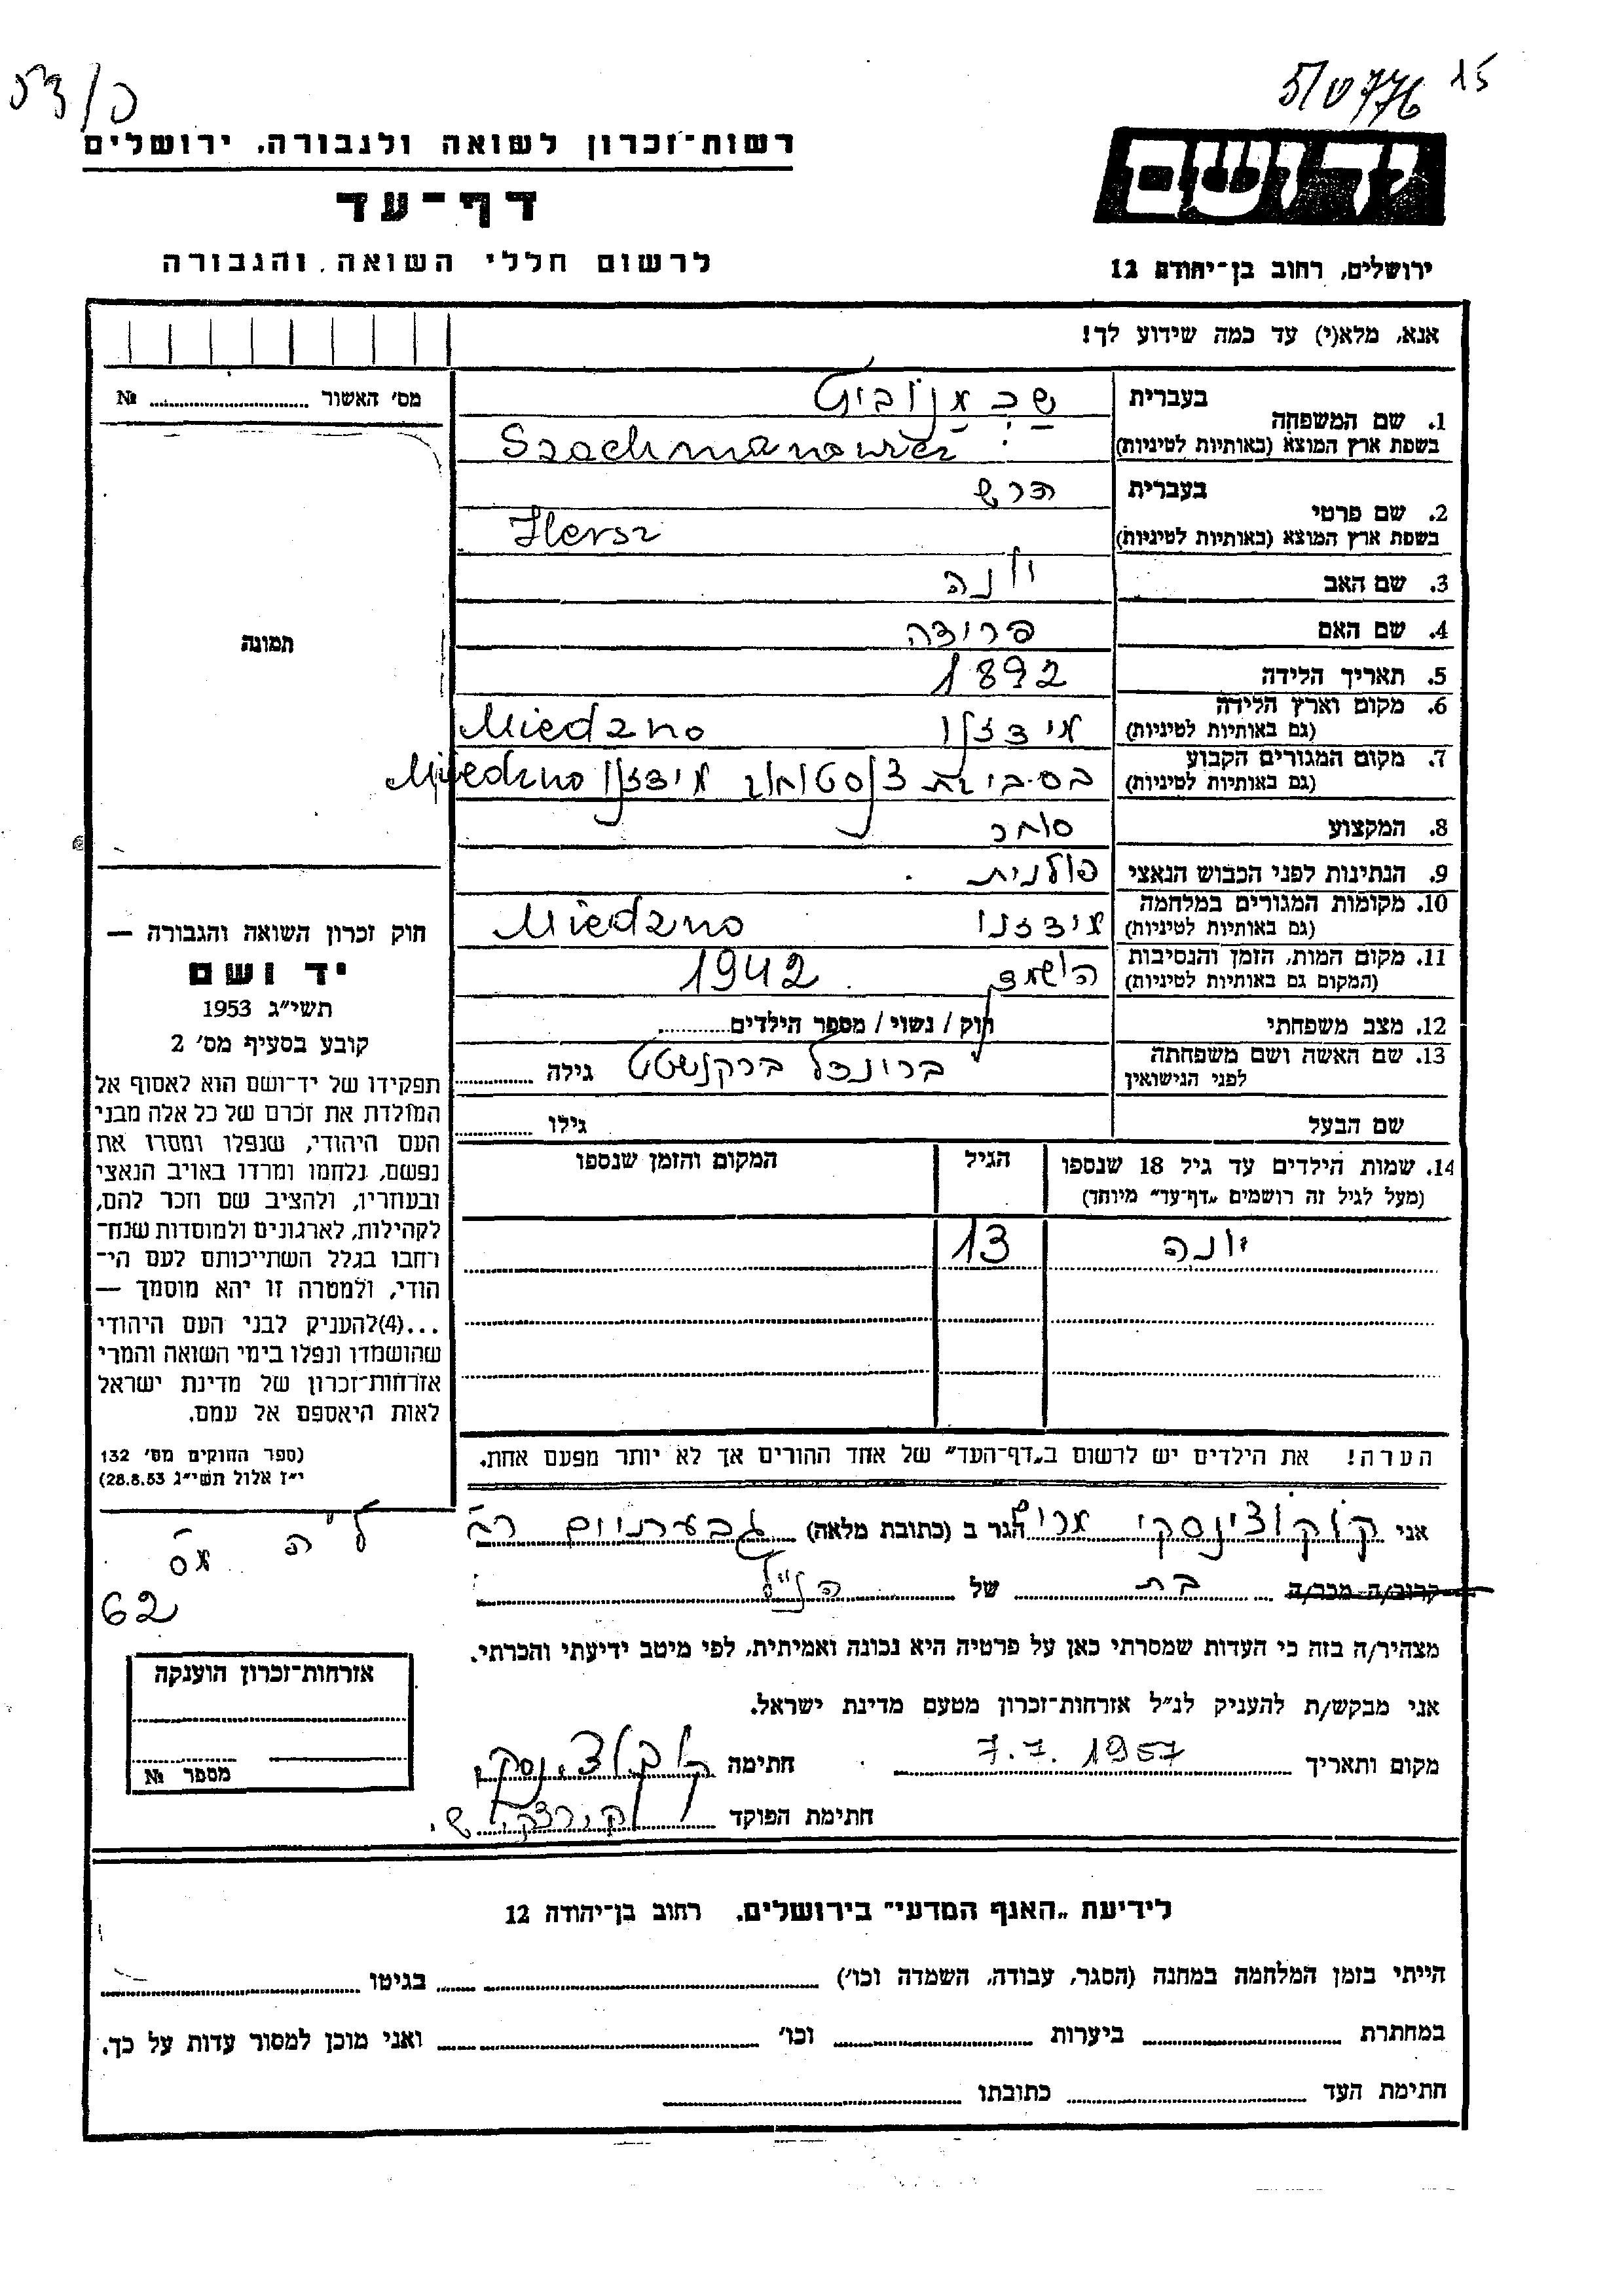 53/כ
5/ט776 15
רשות-זכרון לשואה ולגבורה, ירושלים
דף-עד
לרשום חללי השואה והגבורה
יד ושם
ירושלים, רחוב בן-יהודה 12
אנא, מלא(י) עד כמה שידוע לך!
מס׳ האשור .......... №
תמונה
1. שם המשפחה
בעברית שכמנוביץ
בשפת ארץ המוצא (באותיות לטיניות) Szachmanowicz
2. שם פרטי
בעברית הרש
בשפת ארץ המוצא (באותיות לטיניות) Hersz
3. שם האב יונה
4. שם האם פרידה
5. תאריך הלידה 1892
6. מקום וארץ הלידה (גם באותיות לטיניות) מידזנו Miedzno
7. מקום המגורים הקבוע (גם באותיות לטיניות) בסביבת מידזנו Miedzno
8. המקצוע סוחר
9. הנתינות לפני הכבוש הנאצי פולנית
10. מקומות המגורים במלחמה (גם באותיות לטיניות) מידזנו Miedzno
11. מקום המות, הזמן והנסיבות (המקום גם באותיות לטיניות) הושמד 1942
12. מצב משפחתי רווק / נשוי / מספר הילדים..........
13. שם האשה ושם משפחתה לפני הנישואין גילה ..........
שם הבעל גילו ..........
14. שמות הילדים עד גיל 18 שנספו (מעל לגיל זה רושמים „דף-עד״ מיוחד) הגיל המקום והזמן שנספו
יונה 13
הערה! את הילדים יש לרשום ב„דף-העד״ של אחד ההורים אך לא יותר מפעם אחת.
חוק זכרון השואה והגבורה —
יד ושם
תשי״ג 1953
קובע בסעיף מס׳ 2
תפקידו של יד-ושם הוא לאסוף אל
המולדת את זכרם של כל אלה מבני
העם היהודי, שנפלו ומסרו את
נפשם, נלחמו ומרדו באויב הנאצי
ובעוזריו, ולהציב שם וזכר להם,
לקהילות, לארגונים ולמוסדות שנח-
רחבו בגלל השתייכותם לעם הי-
הודי, ולמטרה זו יהא מוסמך —
...(4)להעניק לבני העם היהודי
שהושמדו ונפלו בימי השואה והמרי
אזרחות-זכרון של מדינת ישראל
לאות היאספם אל עמם.
(ספר החוקים מס׳ 132
י״ז אלול תשי״ג 28.8.53)
62
אני הגר ב (כתובת מלאה)
קרוב/ה מכר/ה בת של הנ״ל
מצהיר/ה בזה כי העדות שמסרתי כאן על פרטיה היא נכונה ואמיתית, לפי מיטב ידיעתי והכרתי.
אני מבקש/ת להעניק לנ״ל אזרחות-זכרון מטעם מדינת ישראל.
מקום ותאריך 7.7.1957 חתימה
חתימת הפוקד
אזרחות-זכרון הוענקה
מספר №
לידיעת „האגף המדעי״ בירושלים, רחוב בן-יהודה 12
הייתי בזמן המלחמה במחנה (הסגר, עבודה, השמדה וכו׳) .......... בגיטו ..........
במחתרת .......... ביערות .......... וכו׳ .......... ואני מוכן למסור עדות על כך.
חתימת העד .......... כתובתו ..........